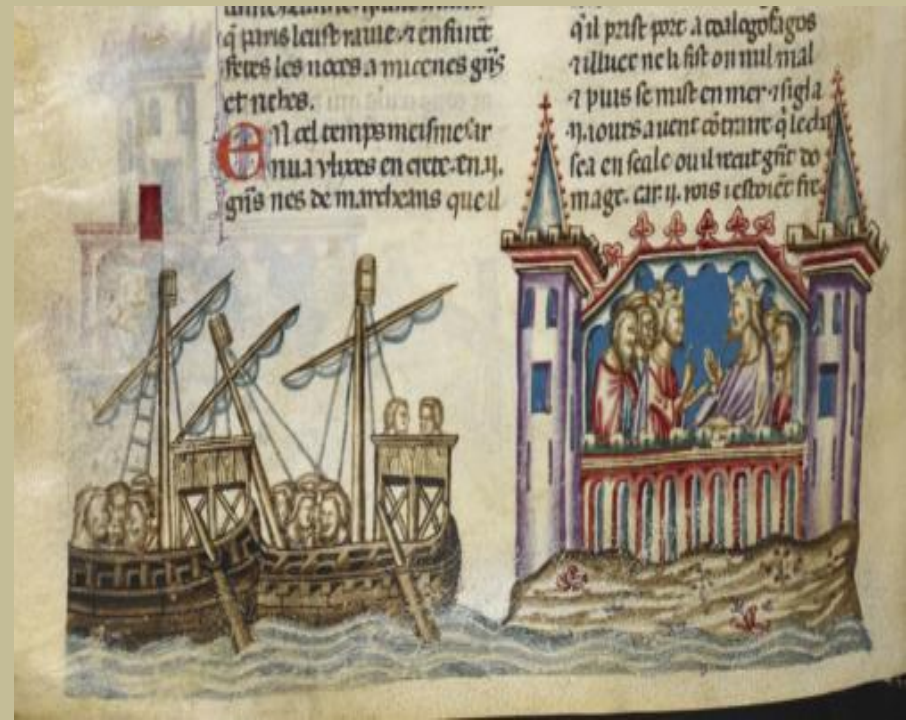 q̃ paris leust rauie ⁊ enfurẽt
fetes les noces a micenes gñs
et riches.
En cel temps meisme ar
riua vlixes en crete. en .ij.
gñs nes de marcheans que il
qͥl prist port. a toalogofagos
⁊ illuec ne li fist on nul mal
⁊ puis se mist en mer ⁊ sigla
.ij. iours. a uent cõtraire q̃ le cha
sea en seale ou il recut gñt do
mage. car .ij. rois i estoiẽt fre